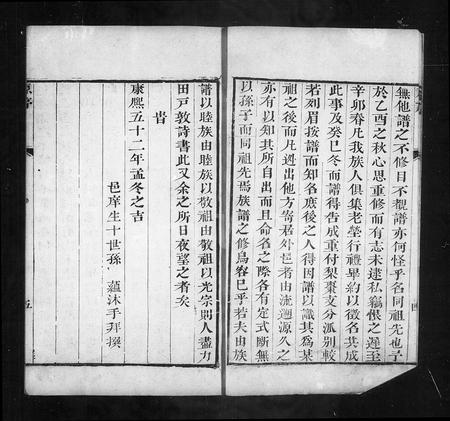 無他譜之不修目不覩譜亦何怪乎名同祖先也予
於乙酉之秋心思重修而有志未逮私竊恨之遲至
辛卯春凡我族人俱集老塋行禮畢約以徵名共成
此事及癸巳冬而譜得告成重付梨棗支分派別較
若列眉按譜而知名庶後之人得因譜以識其為某
祖之後而凡遷出他方寄居外邑者由流遡源久之
亦有以知其所自出而且命名之際各有定式斷無
以孫子而同祖先焉族譜之修烏容已乎若夫由族
譜以睦族由睦族以敬祖由敬祖以光宗則人盡力
田戸敦詩書此又余之所日夜望之者矣
旹
康熙五十二年孟冬之吉
邑庠生十世孫 蘊沐手拜撰
五